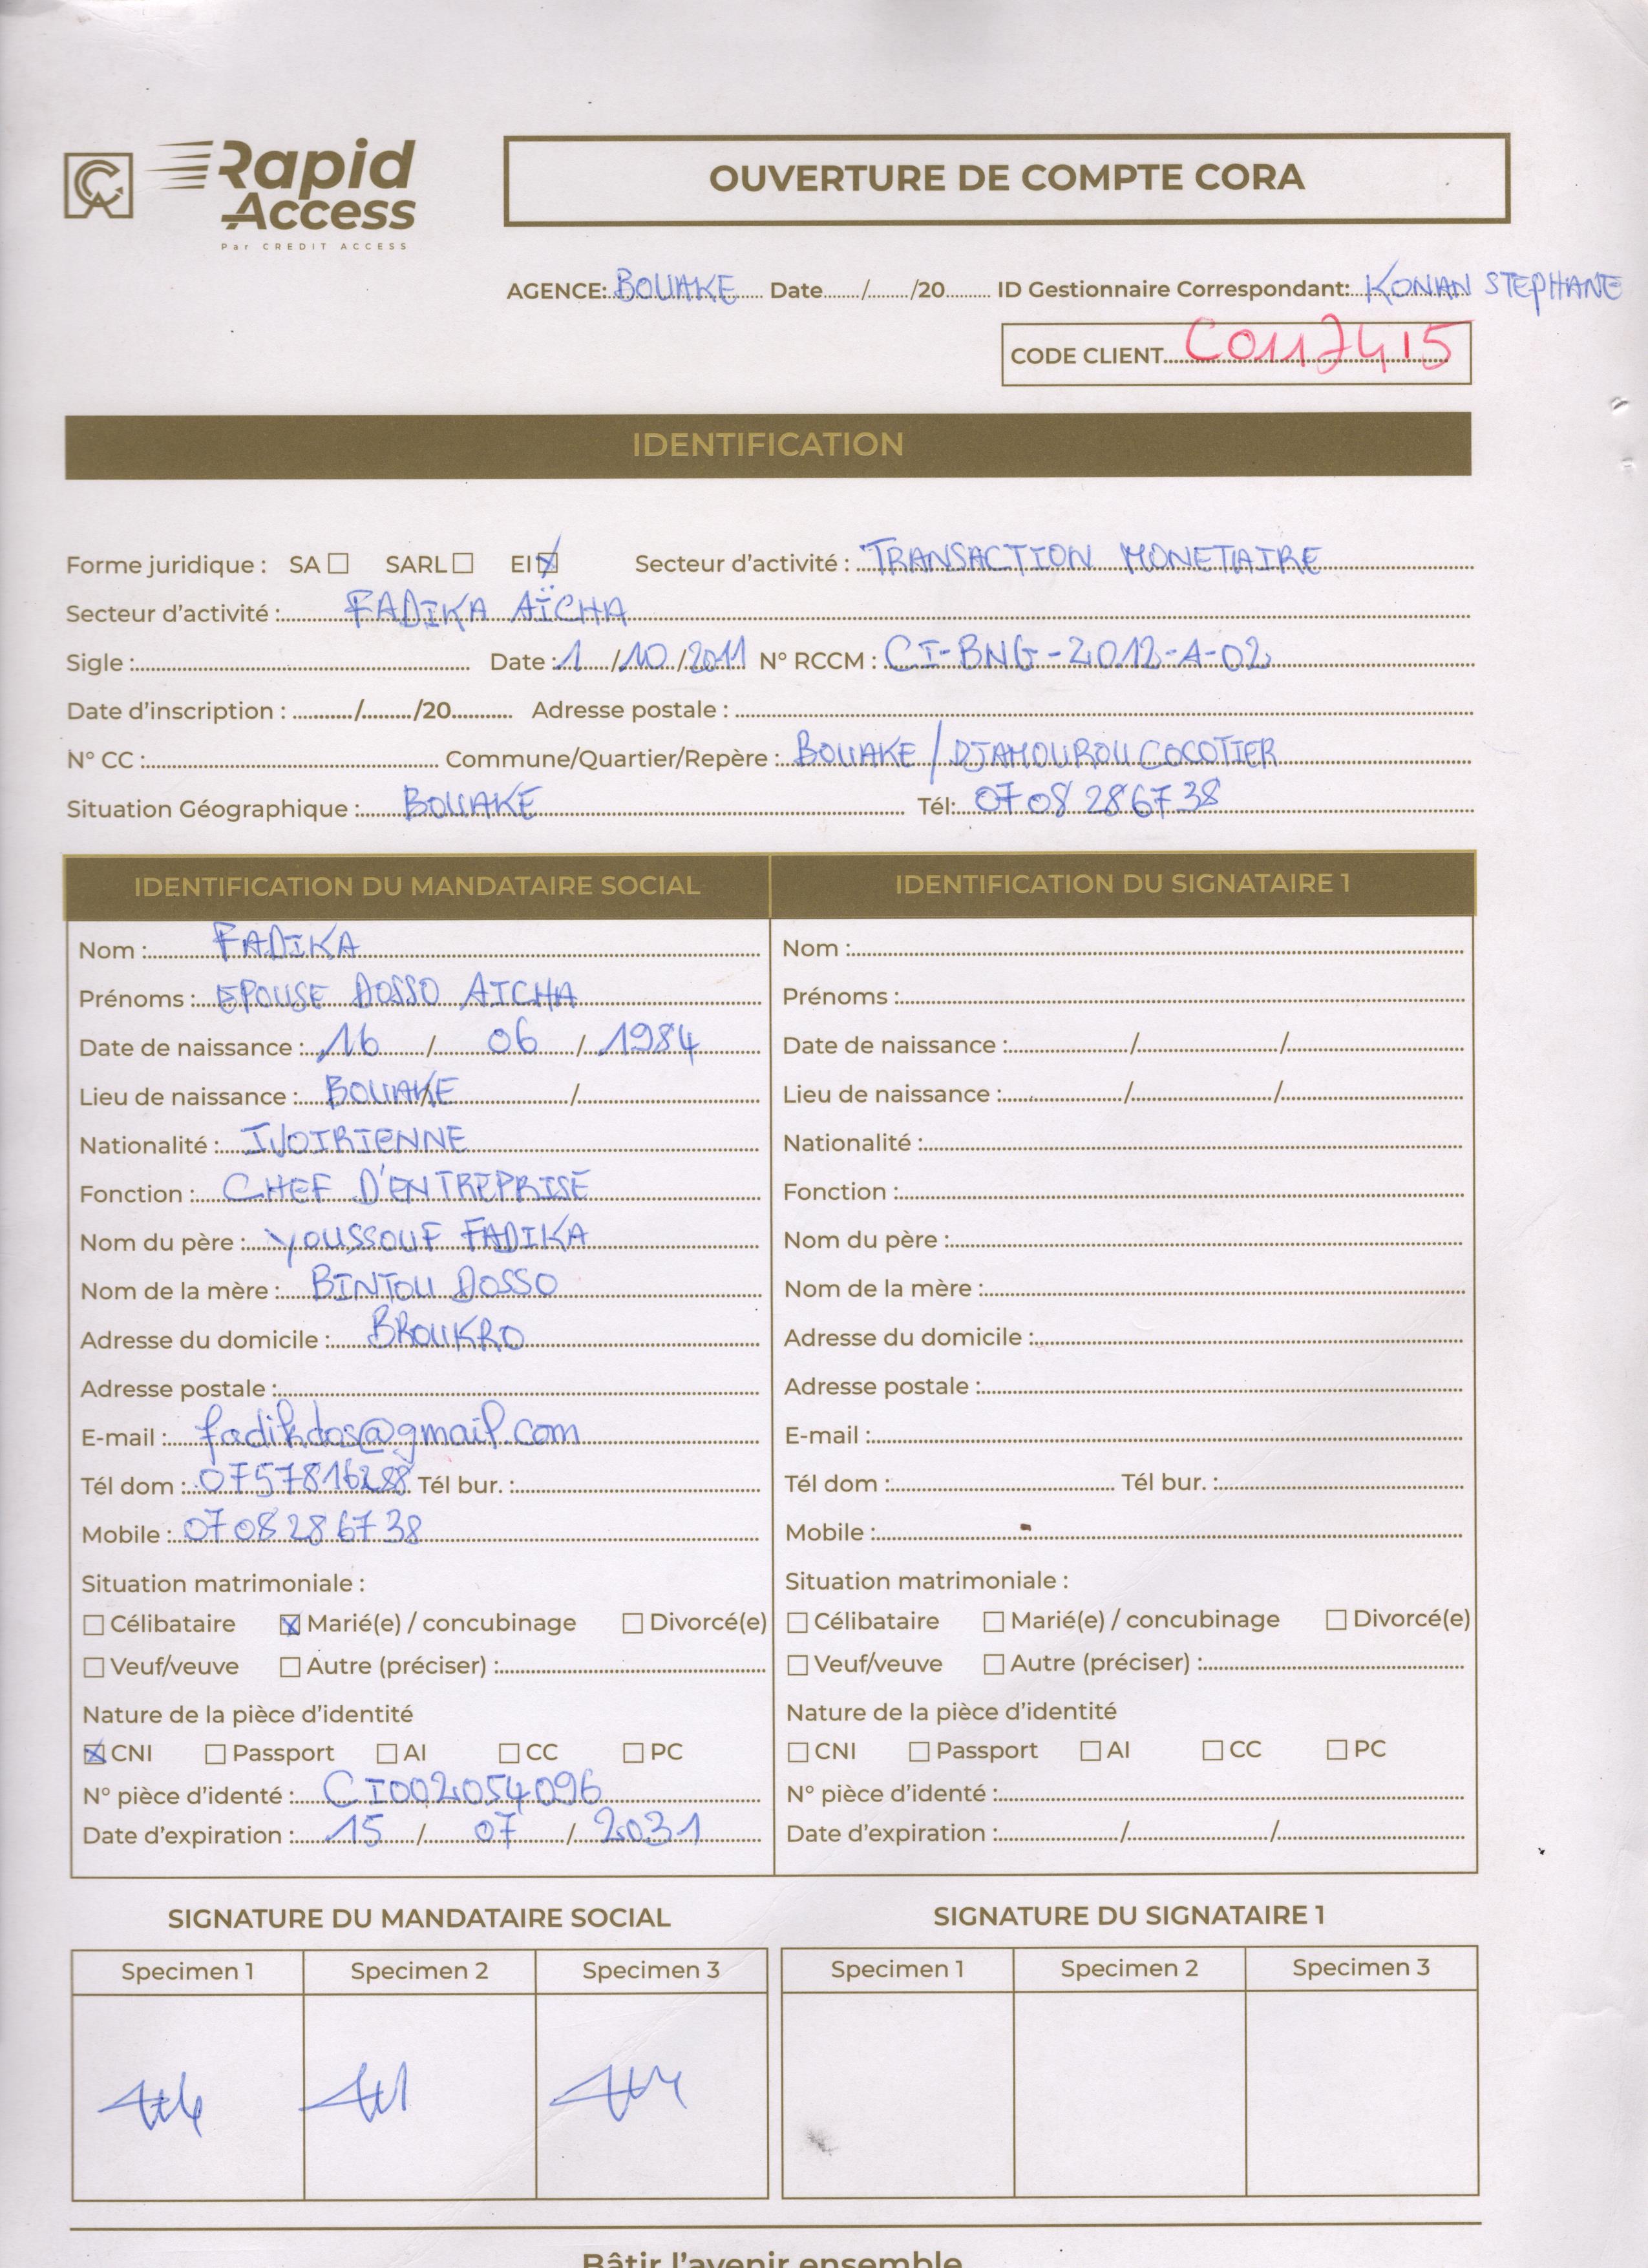 Rapid Access
Par CREDIT ACCESS
OUVERTURE DE COMPTE CORA
AGENCE: BOUAKE Date......./......./20......... ID Gestionnaire Correspondant: KONAN STEPHANE
CODE CLIENT C0117415
IDENTIFICATION
Forme juridique : SA ☐ SARL ☐ EI ☒ Secteur d'activité : TRANSACTION MONETAIRE
Secteur d'activité : FADIKA AÏCHA
Sigle : Date : 1 / 10 / 2011 N° RCCM : CI-BNG-2012-A-02
Date d'inscription : ........../......../20.......... Adresse postale :
N° CC : Commune/Quartier/Repère : BOUAKE / DJAMOUROU COCOTIER
Situation Géographique : BOUAKE Tél: 0708286738
IDENTIFICATION DU MANDATAIRE SOCIAL
Nom : FADIKA
Prénoms : EPOUSE DOSSO AICHA
Date de naissance : 16 / 06 / 1984
Lieu de naissance : BOUAKE /
Nationalité : IVOIRIENNE
Fonction : CHEF D'ENTREPRISE
Nom du père : YOUSSOUF FADIKA
Nom de la mère : BINTOU DOSSO
Adresse du domicile : BROUKRO
Adresse postale :
E-mail : fadikdos@gmail.com
Tél dom : 0757816288 Tél bur. :
Mobile : 0708286738
Situation matrimoniale :
☐ Célibataire ☒ Marié(e) / concubinage ☐ Divorcé(e)
☐ Veuf/veuve ☐ Autre (préciser) :
Nature de la pièce d'identité
☒ CNI ☐ Passport ☐ AI ☐ CC ☐ PC
N° pièce d'identé : CI002054096
Date d'expiration : 15 / 07 / 2031
IDENTIFICATION DU SIGNATAIRE 1
Nom :
Prénoms :
Date de naissance : / /
Lieu de naissance : / /
Nationalité :
Fonction :
Nom du père :
Nom de la mère :
Adresse du domicile :
Adresse postale :
E-mail :
Tél dom : Tél bur. :
Mobile :
Situation matrimoniale :
☐ Célibataire ☐ Marié(e) / concubinage ☐ Divorcé(e)
☐ Veuf/veuve ☐ Autre (préciser) :
Nature de la pièce d'identité
☐ CNI ☐ Passport ☐ AI ☐ CC ☐ PC
N° pièce d'identé :
Date d'expiration : / /
SIGNATURE DU MANDATAIRE SOCIAL
Specimen 1 Specimen 2 Specimen 3
SIGNATURE DU SIGNATAIRE 1
Specimen 1 Specimen 2 Specimen 3
Bâtir l'avenir ensemble